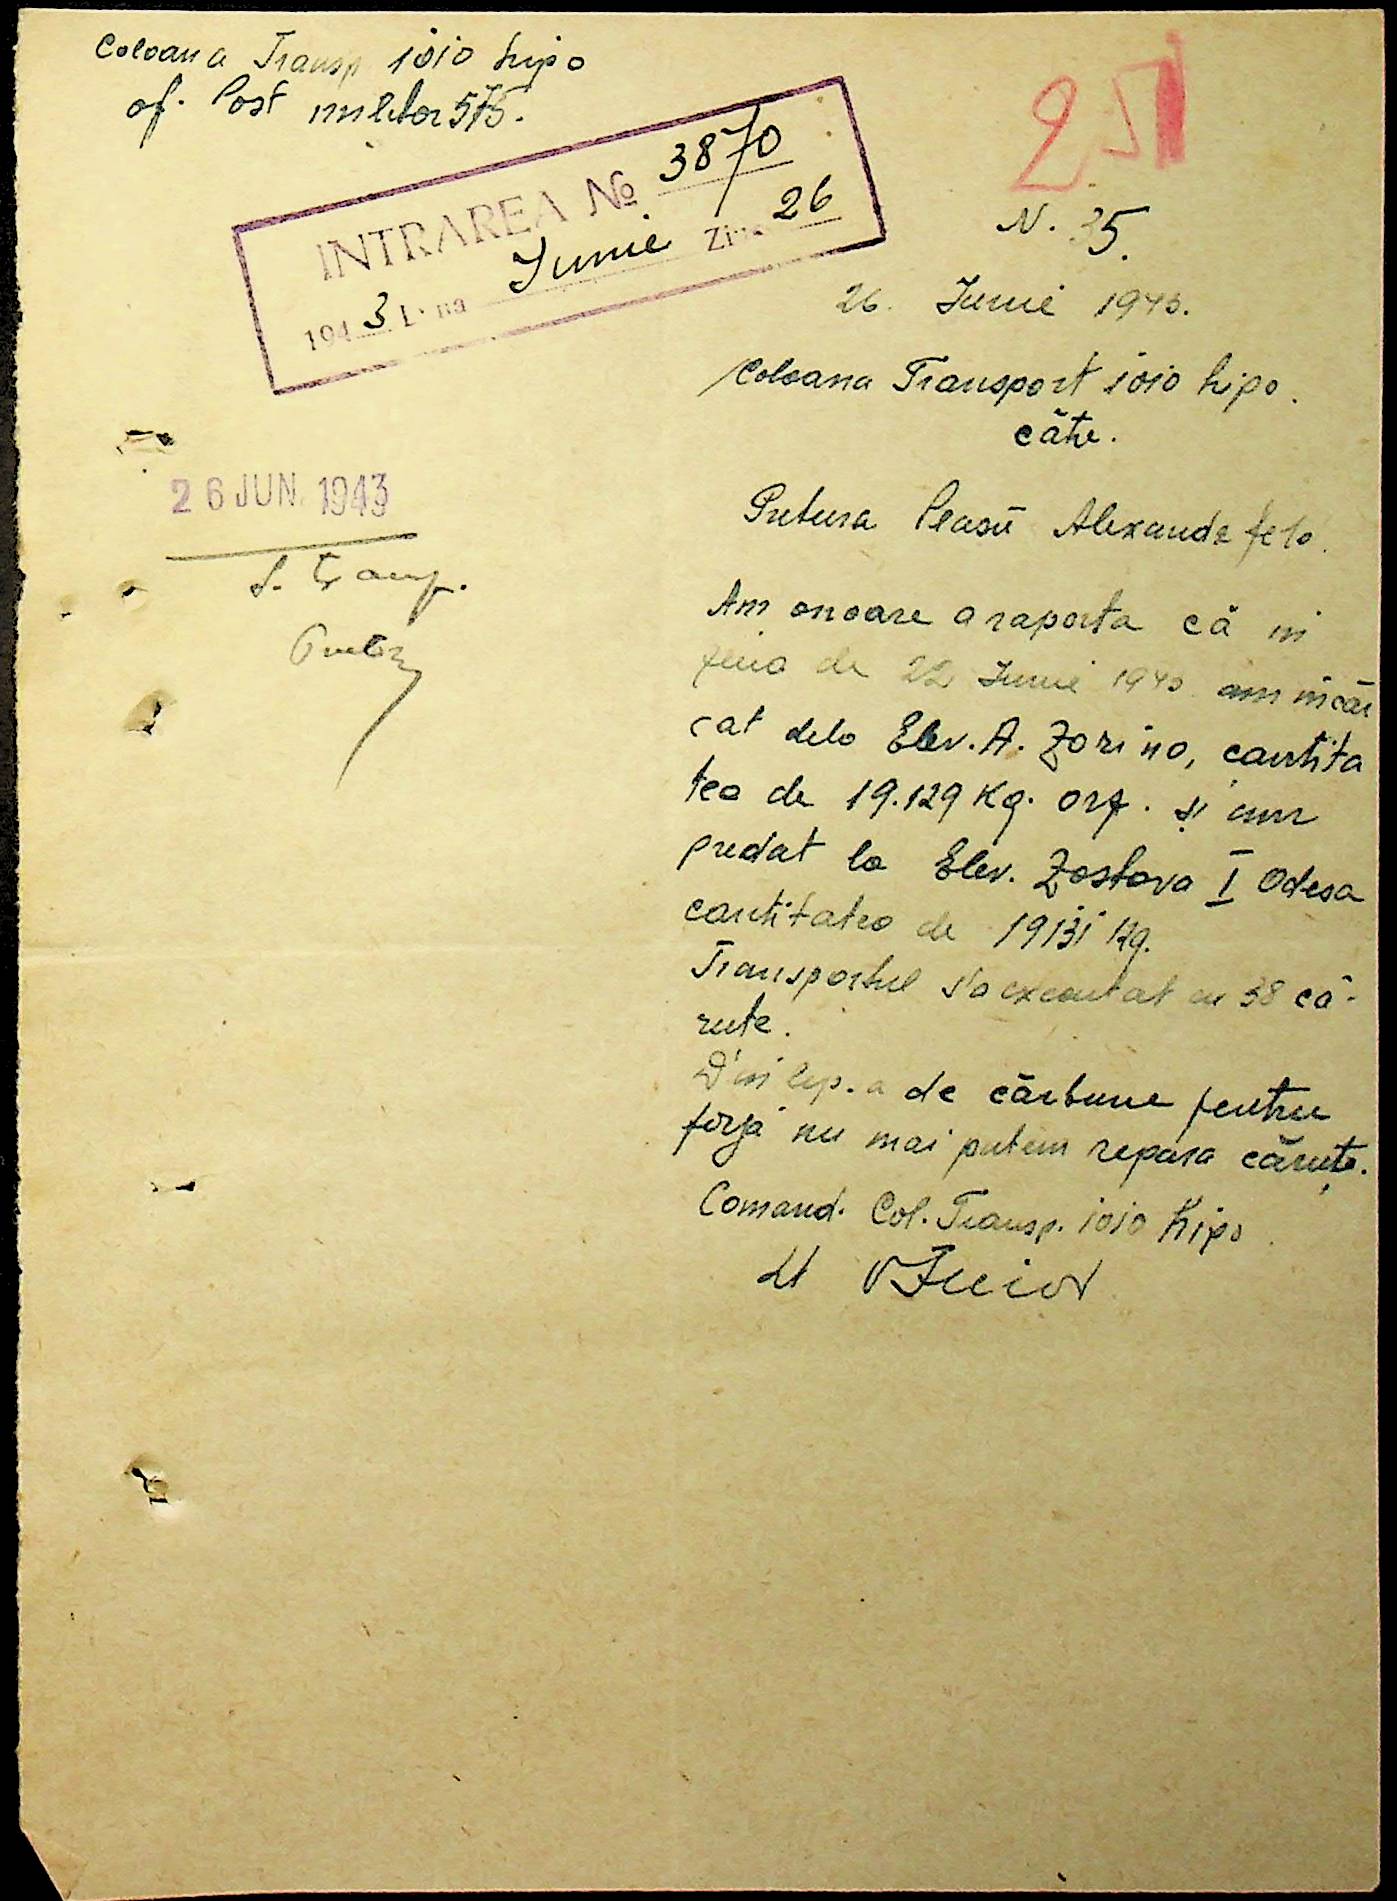 Coloana Transp 1010 hipo
of. Post militar 575.
25
INTRAREA No 3870
1943 Luna Iunie Ziua 26
N. 35.
26. Iunie 1943.
Coloana Transport 1010 hipo.
către.
Pretura Plasii Alexanderfeld.
26 JUN. 1943
S. Transp.
Am onoare a raporta că in
ziua de 22 Iunie 1943 am incăr
cat dela Elev. A. Zorino, cantita
tea de 19.129 Kg. orz. și am
predat la Elev. Zastava I Odesa
cantitatea de 19131 Kg.
Transportul s'a executat cu 38 că-
rute.
Din lip. a de cărbune pentru
forja nu mai putem repara căruțe.
Comand. Col. Transp. 1010 hipo
Lt